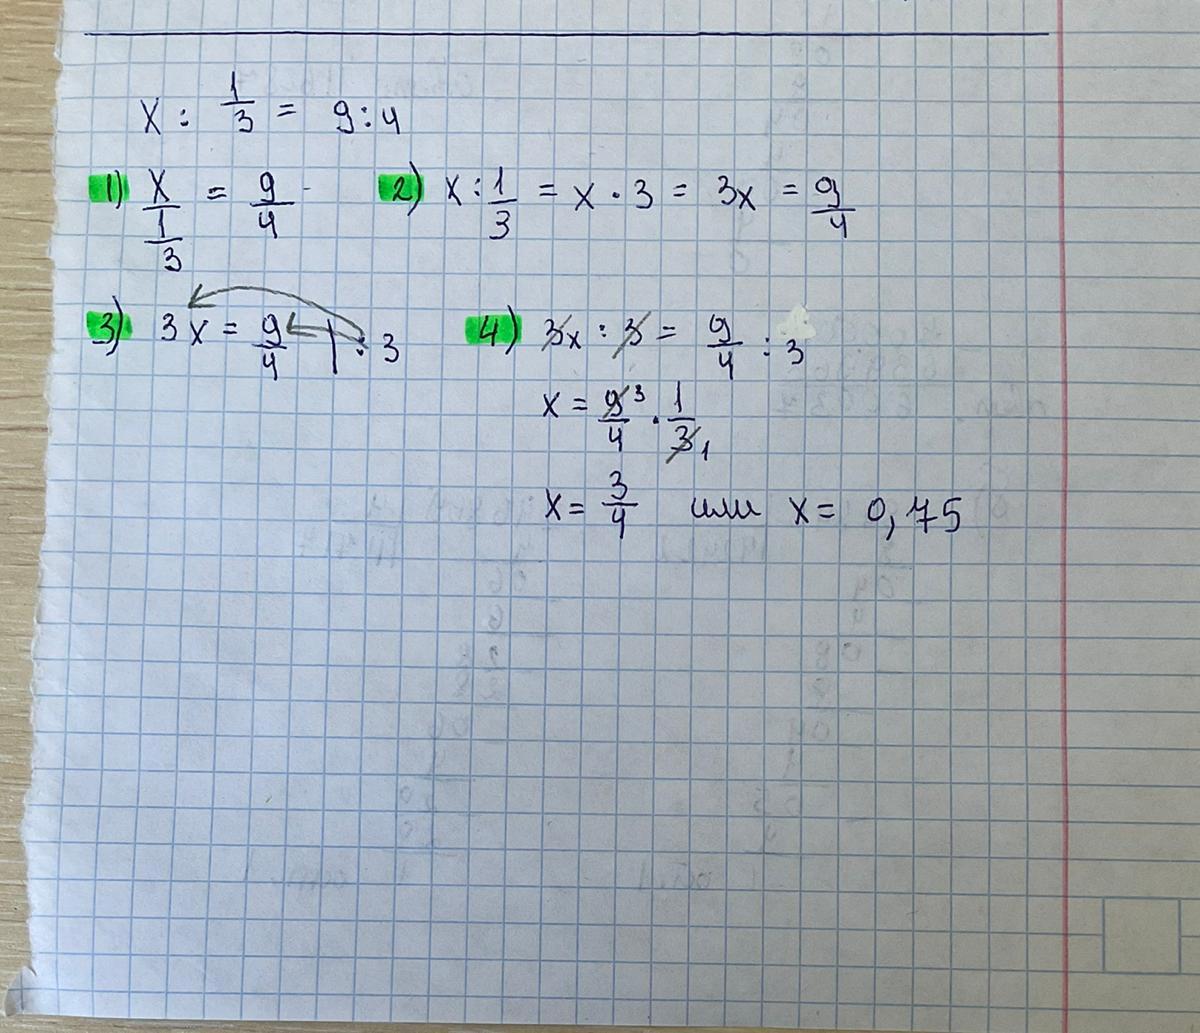 x : 1/3 = 9 : 4
1) x/(1/3) = 9/4 2) x : 1/3 = x · 3 = 3x = 9/4
3) 3x = 9/4 | : 3 4) 3x : 3 = 9/4 : 3
x = 9³/4 · 1/3₁
x = 3/4 или x = 0,75